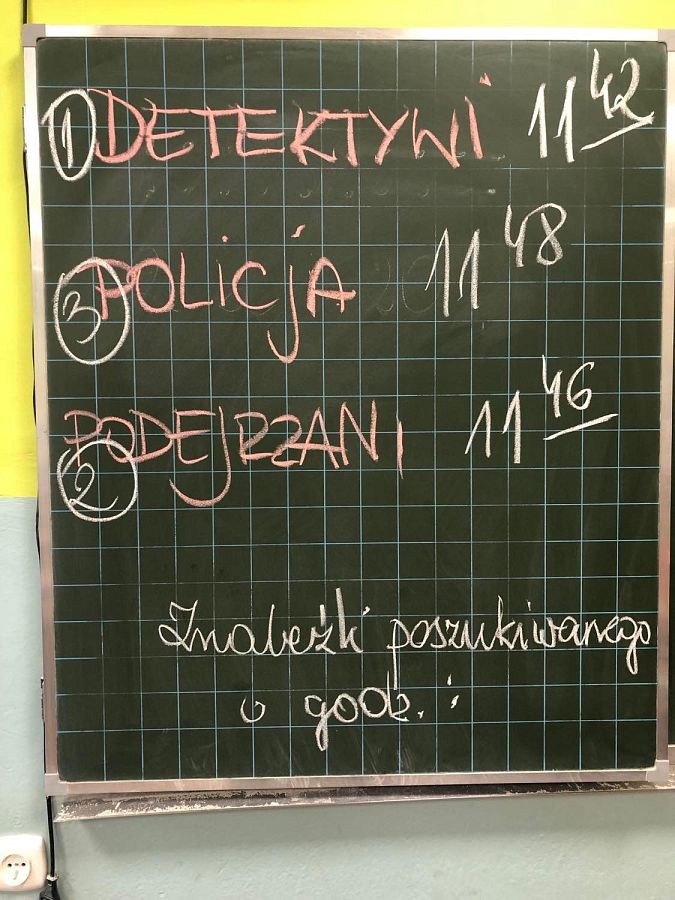 1 DETEKTYWI 11 42
3 POLICJA 11 48
2 PODEJRZANI 11 46
Znaleźli poszukiwanego
o godz. :